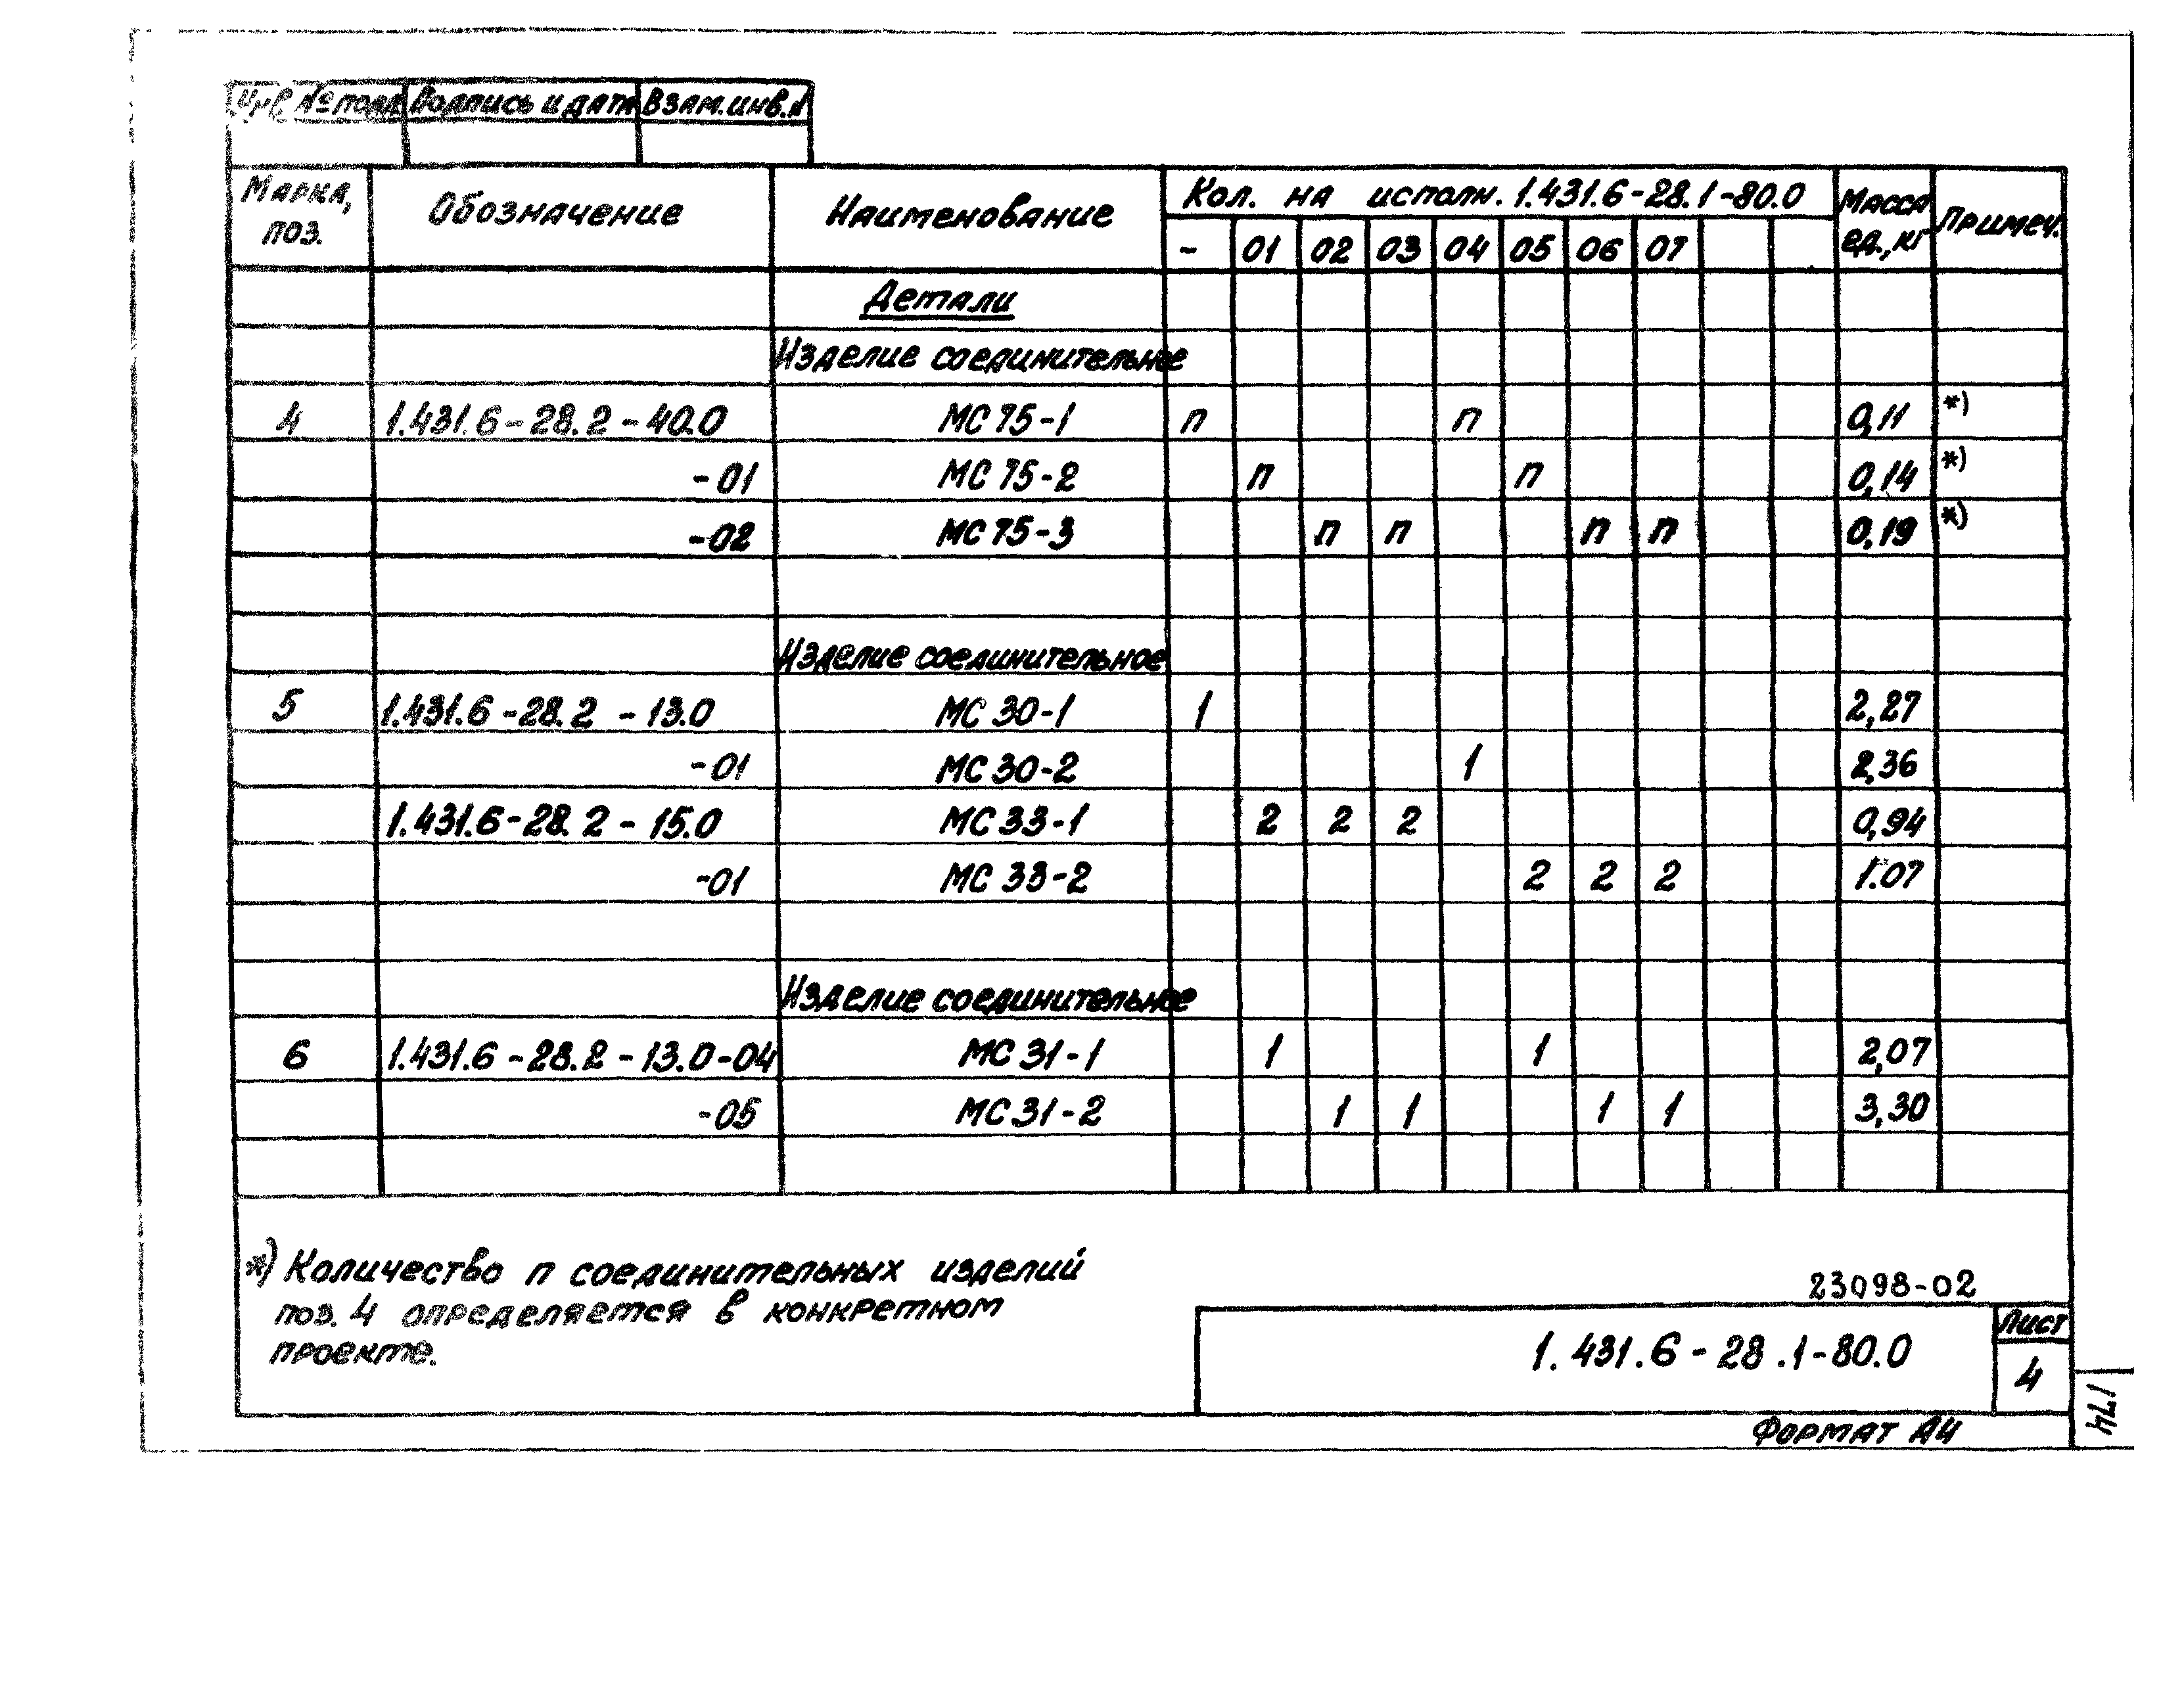 Инв. № подл. Подпись и дата Взам. инв. №
Марка, поз. Обозначение Наименование Кол. на исполн. 1.431.6-28.1-80.0 Масса ед., кг Примеч.
- 01 02 03 04 05 06 07
Детали
Изделие соединительное
4 1.431.6-28.2-40.0 МС 75-1 п п 0,11 *)
-01 МС 75-2 п п 0,14 *)
-02 МС 75-3 п п п п 0,19 *)
Изделие соединительное
5 1.431.6-28.2-13.0 МС 30-1 1 2,27
-01 МС 30-2 1 2,36
1.431.6-28.2-15.0 МС 33-1 2 2 2 0,94
-01 МС 33-2 2 2 2 1.07
Изделие соединительное
6 1.431.6-28.2-13.0-04 МС 31-1 1 1 2,07
-05 МС 31-2 1 1 1 1 3,30
*) Количество п соединительных изделий
поз. 4 определяется в конкретном
проекте.
23098-02
1.431.6-28.1-80.0 Лист
4
Формат А4
174